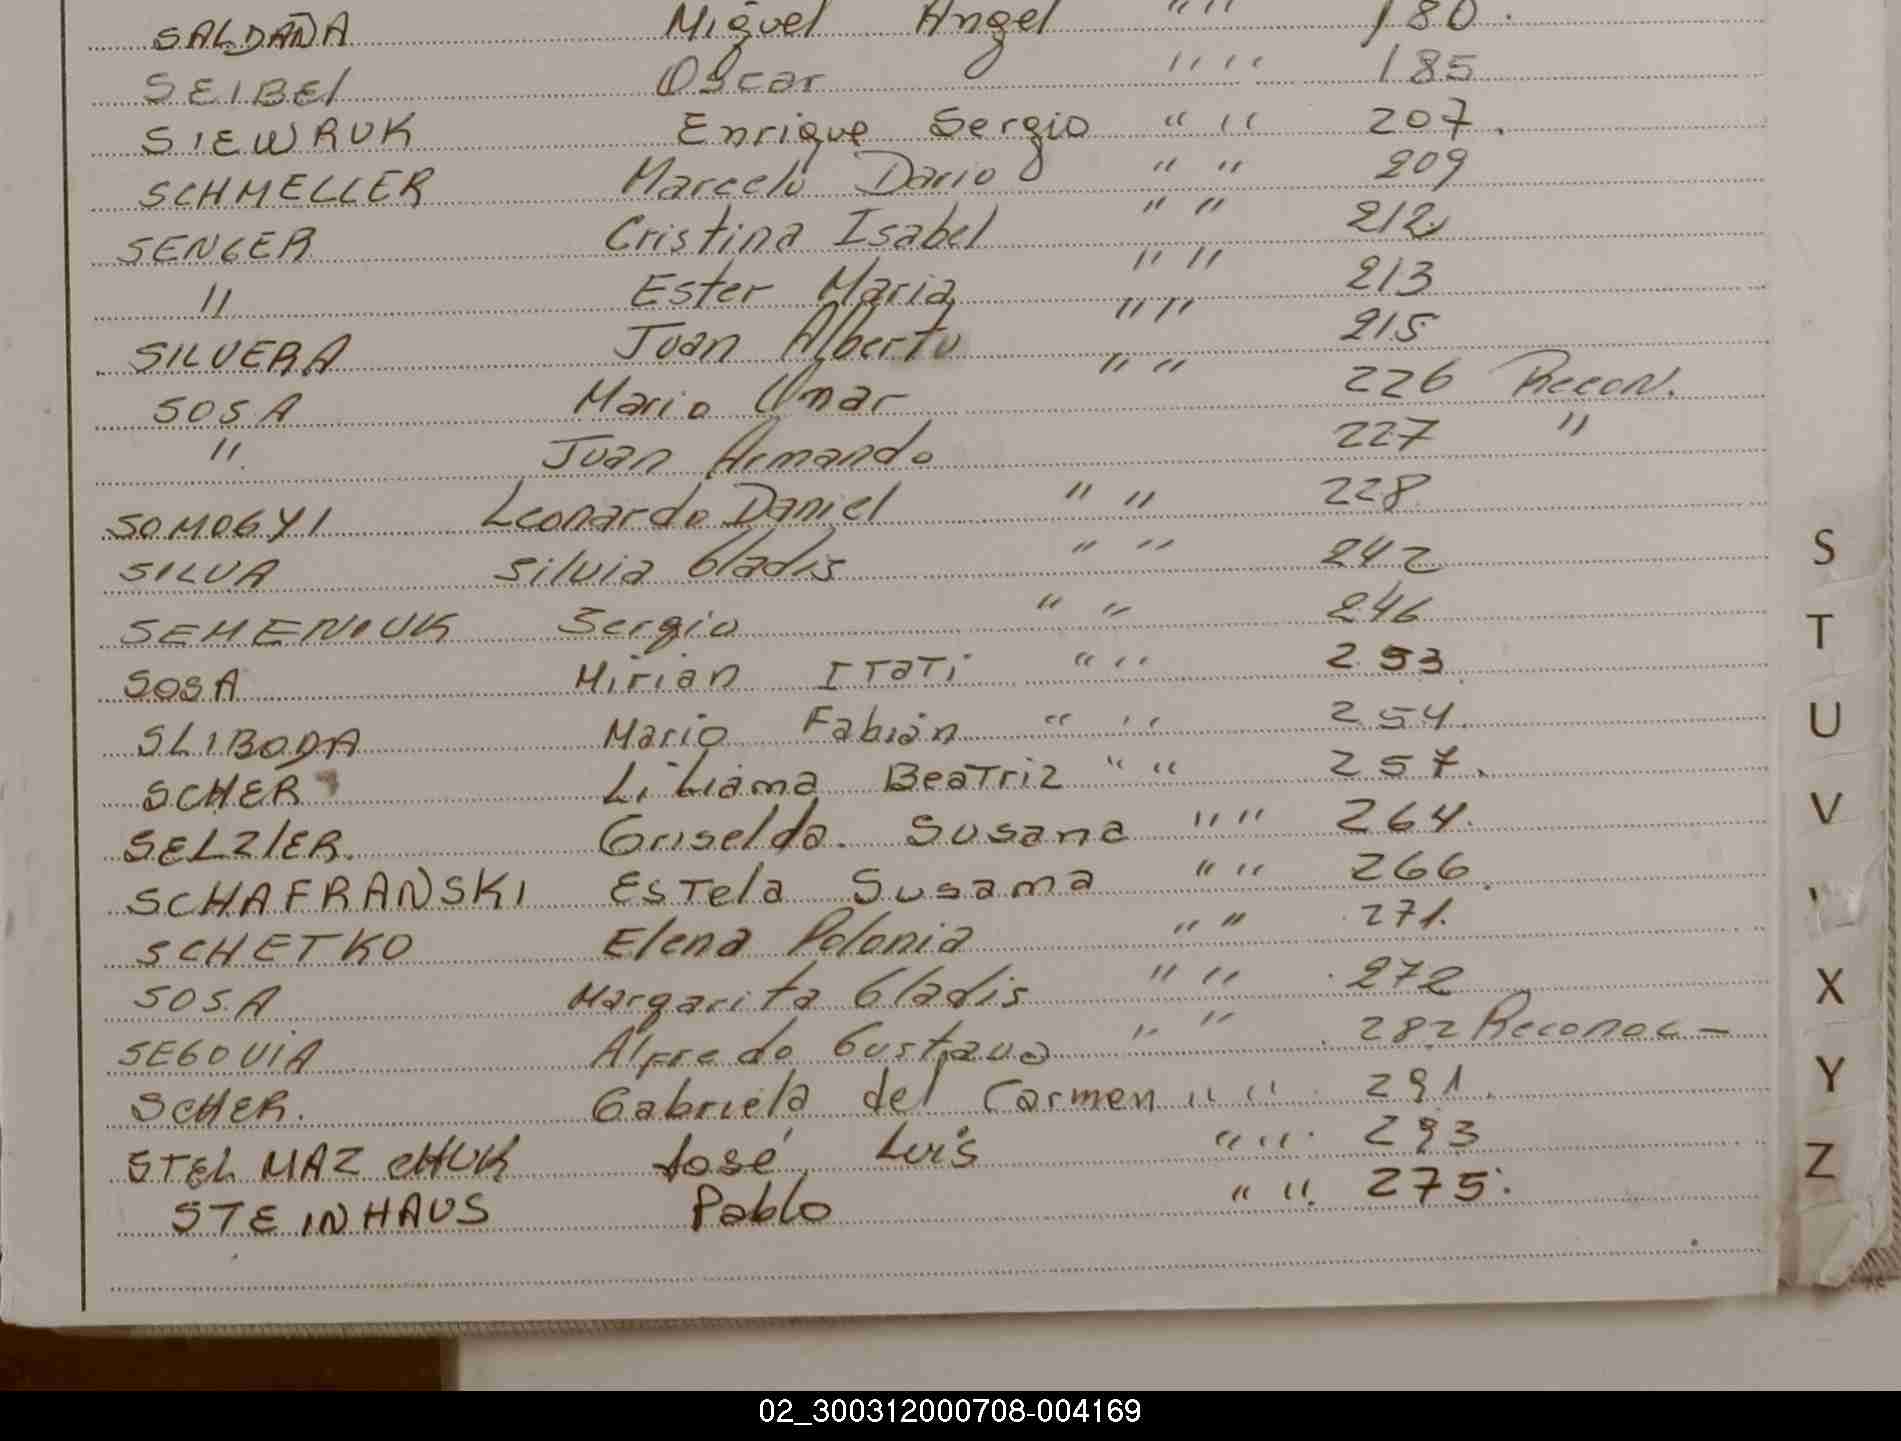 SALDAÑA Miguel Angel " " 180.
SEIBEl Oscar " " 185
SIEWRUK Enrique Sergio " " 207.
SCHMELLER Marcelo Dario " " 209
SENGER Cristina Isabel " " 212
" Ester Maria " " 213
SILVERA Juan Alberto " " 215
SOSA Mario Omar " " 226 Recon.
" Juan Armando 227 "
SOMOGYI Leonardo Daniel " " 228
SILVA Silvia Gladis " " 242
SEMENIUK Sergio " " 246
SOSA Mirian ITATi " " 253
SLIBODA Mario Fabián " " 254.
SCHER Liliama BeaTriz " " 257.
SELZlER. Griselda. Susana " " 264.
SCHAFRANSKI ESTela Susama " " 266.
SCHETKO Elena Polonia " " 271.
SOSA Margarita Gladis " " 272
SEGOVIA Alfredo Gustavo " " 282 Reconoc—
SCHER. Gabriela del Carmen " " 291.
STELMAZCHUK José Luis " " 293
STEINHAUS Pablo " " 275.
S
T
U
V
X
Y
Z
02_300312000708-004169